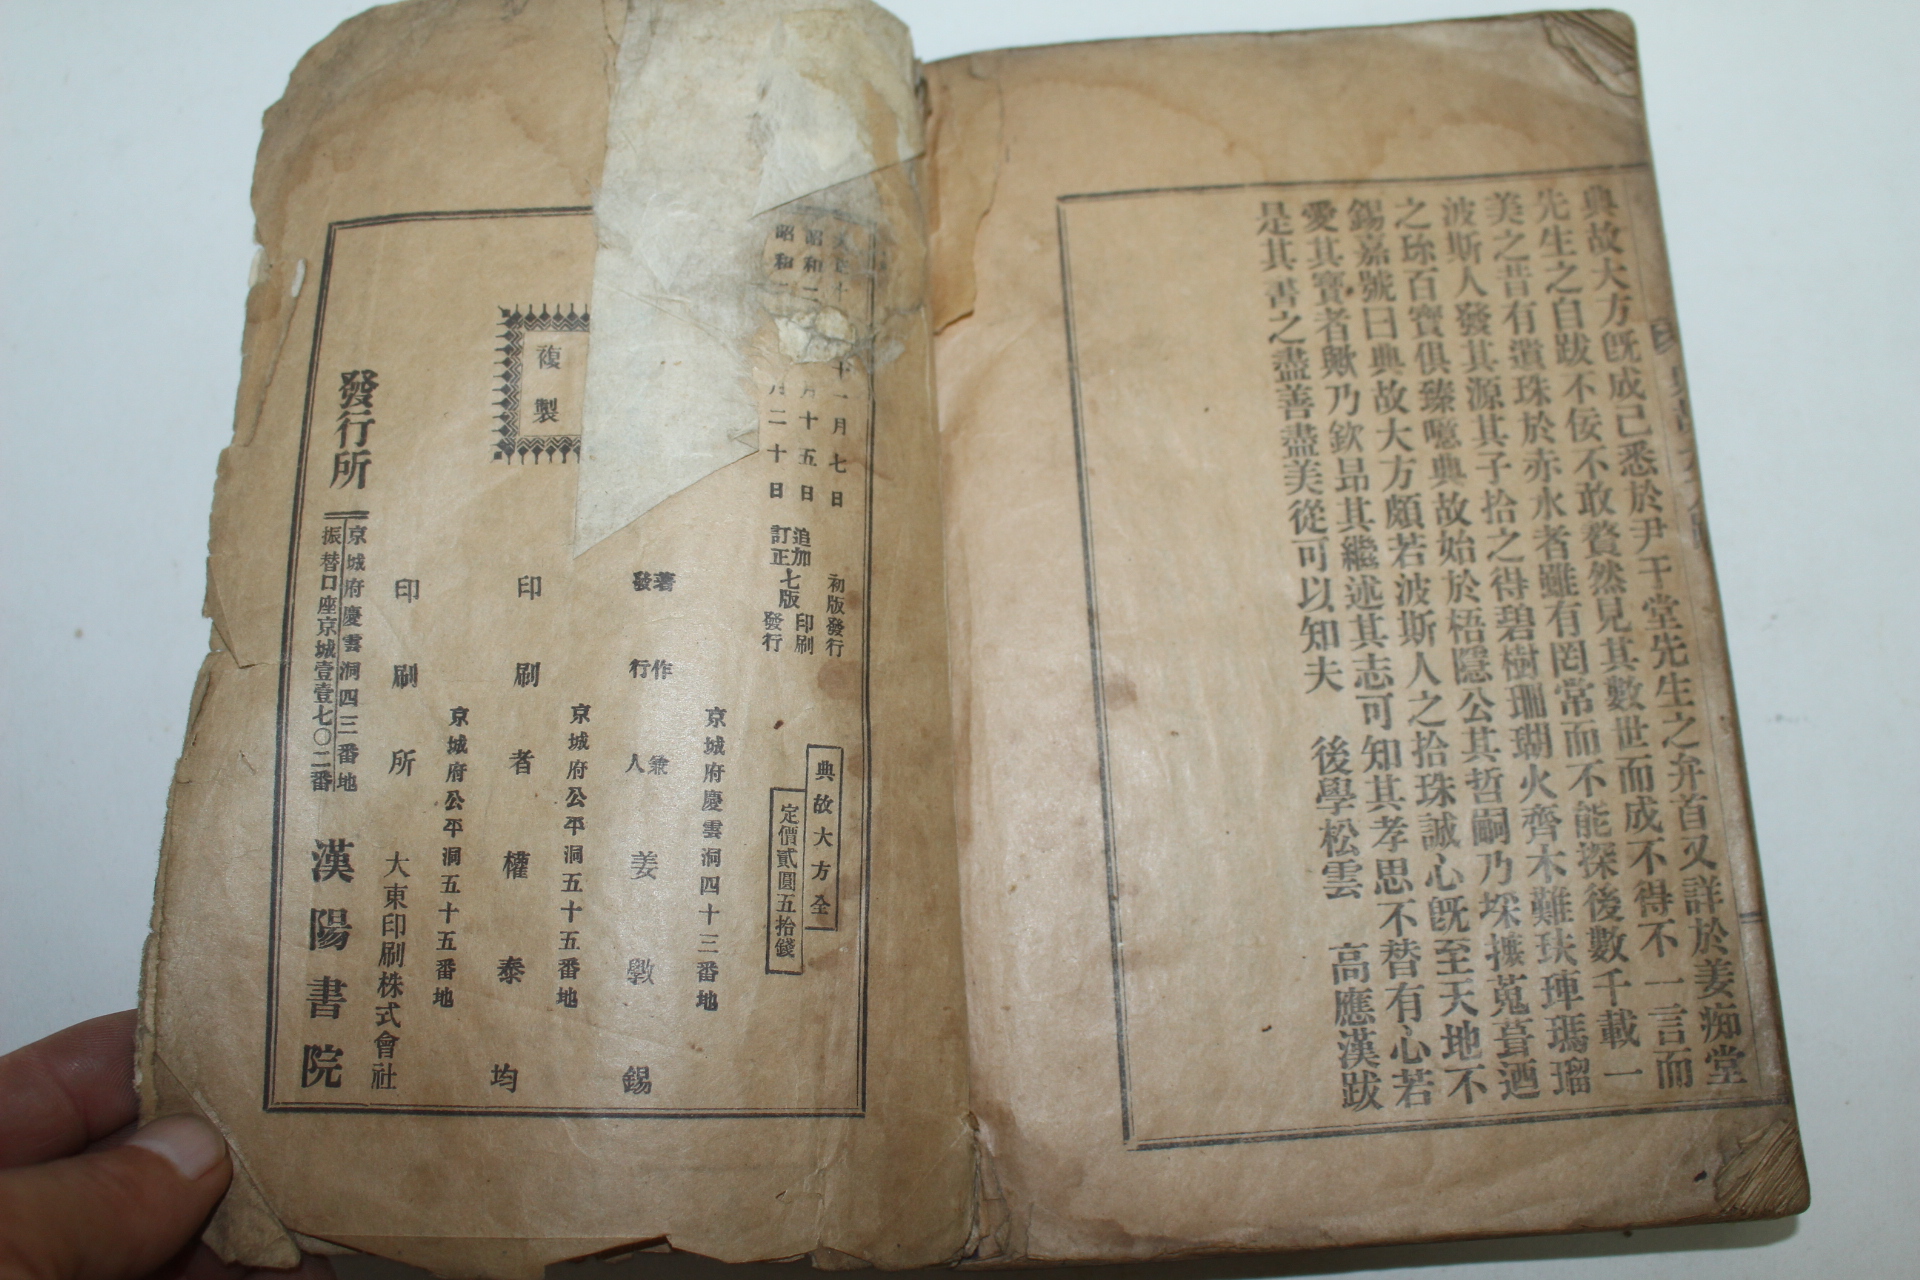 典故大方旣成已悉於尹于堂先生之弁首又詳於姜痴堂
先生之自跋不佞不敢贅然見其數世而成不得不一言而
美之昔有遺珠於赤水者雖有罔常而不能探後數千載一
波斯人發其源其子拾之得碧樹珊瑚火齊木難玞琿瑪瑠
之珎百寶俱臻噫典故始於梧隱公其哲嗣乃埰摭蒐葺迺
錫嘉號曰典故大方頗若波斯人之拾珠誠心旣至天地不
愛其寶者歟乃欽昻其繼述其志可知其孝思不替有心若
是其書之盡善盡美從可以知夫 後學松雲 高應漢跋
十一月七日 初版發行
昭和二 月十五日 追加訂正七版 印刷
昭和二 月二十日 發行
典故大方全
定價貳圓五拾錢
京城府慶雲洞四十三番地
著作兼發行人 姜斅錫
京城府公平洞五十五番地
印刷者 權泰均
京城府公平洞五十五番地
印刷所 大東印刷株式會社
複製
發行所
京城府慶雲洞四三番地
振替口座京城壹壹七〇二番
漢陽書院